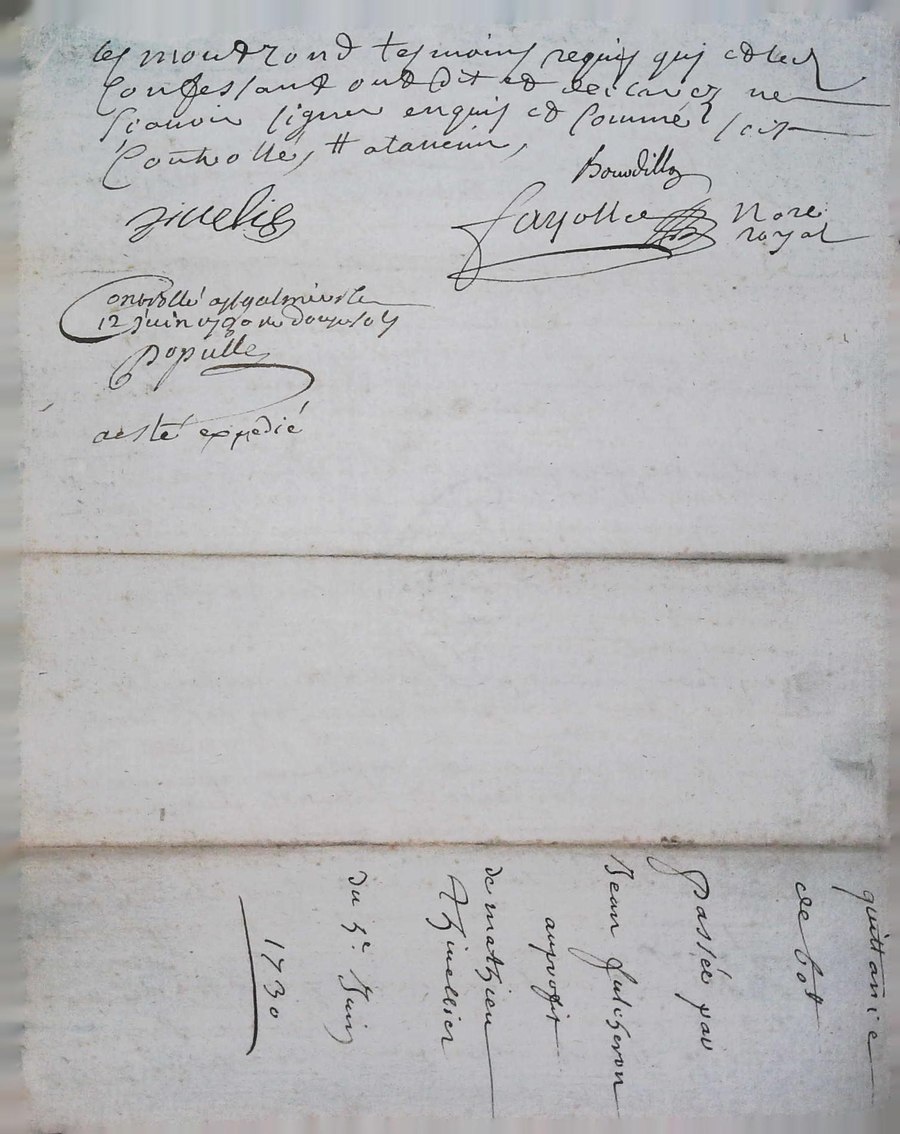 les moudrond tesmoins requis qui et led
Confessant ont dit et desclarez ne
sçavoir signer enquis et sommé soit
Controllé, # atancun,
Bourdillo
fayolle Nore
royal
Controllé a
12 juin 1730
populle
aesté expedié
quittance
de bot
passée par
Jean fulcheron
auprofit
de mathieu
du 5e Juin
1730